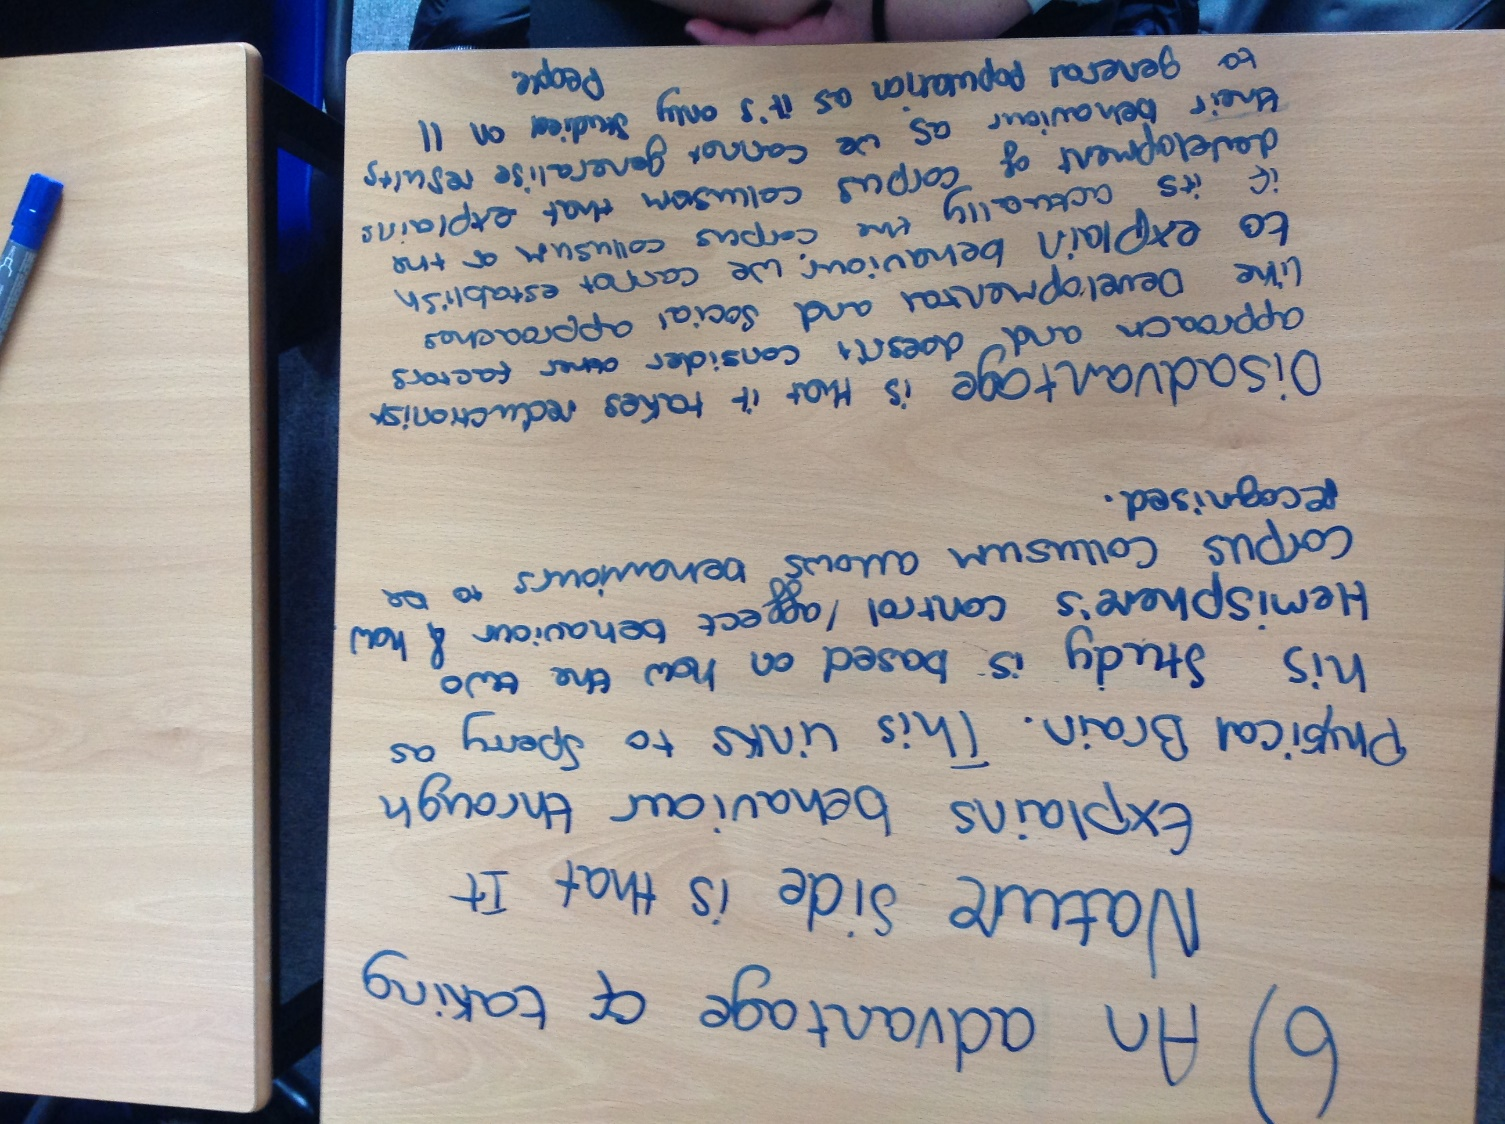 6) An advantage of taking
Nature side is that It
Explains behaviour through
Physical Brain. This links to Sperry as
his study is based on how the two
Hemisphere's control/affect behaviour & how
corpus collusum allows behaviours to be
recognised.
Disadvantage is that it takes reductionist
approach and doesn't consider other factors
like Developmental and social approaches
to explain behaviour, we cannot establish
if its actually the corpus collusum or the
development of corpus collusom that explains
their behaviour as we cannot generalise results
to general population as it's only studied on 11
People